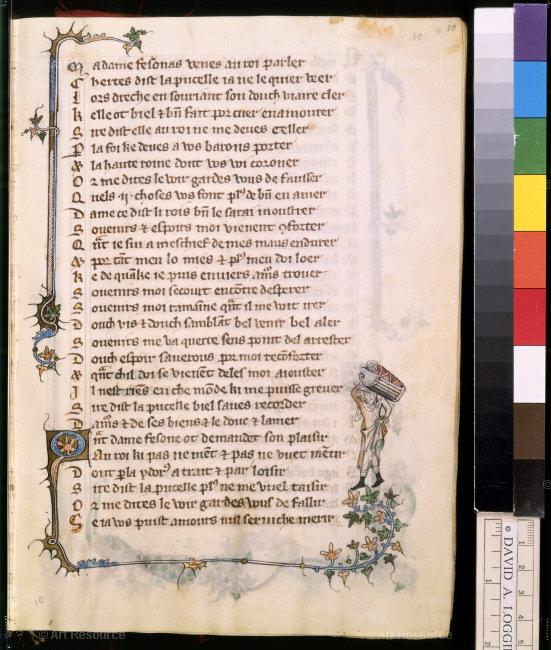 34
10
M adame fesonas venes au roi parler
C hertes dist la pucelle ia ne le quier veer
L ors dreche en souriant son douch viaire cler
k elle ot biel & bñ fait por cuer enamourer
S ire dist elle au roi ne me deves celler
P la foi ke deves a vos barons porter
& la haute roine dont vos voi coroner
O r me dites le voir gardes vous de fausser
Q uels .ij. choses vos font pl9 de bñ en amer
D ame ce dist li rois bñ le sarai moustrer
S ouvenirs & espoirs moi vienent 9forter
Q ñt ie sui a meschief de mes maus endurer
& por tãt men lo mies & pl9 men doi loer
k e de quãke ie puis enviers amõs trouver
S ouvenirs moi secourt encõtre desperer
S ouvenirs moi ramaine qãt il me voit irer
D ouch vis & douch samblãt bel venir bel aler
S ouvenirs me va querre sens point del arrester
D ouch espoir saverous por moi recõforter
& qñt chil doi se vienẽt deles moi aiouster
I l nest riẽs en che mõde ki me puisse grever
S ire dist la pucelle biel saves recorder
D amõs & de ses biens & le douc & lamer
Q ñt dame fesone ot demandet son plaisir
A u roi ki pas ne mẽt & pas ne vuet mẽtir
D ont pla ydor9 a trait & par loisir
S ire dist la pucelle pl9 ne me vuel taisir
O r me dites le voir gardes vous de fallir
S e ia vos puist amours mil ser niche merir
© DAVID A. LOGGI
1
2
1
2
3
4
5
© Art Resource
© Art Resource